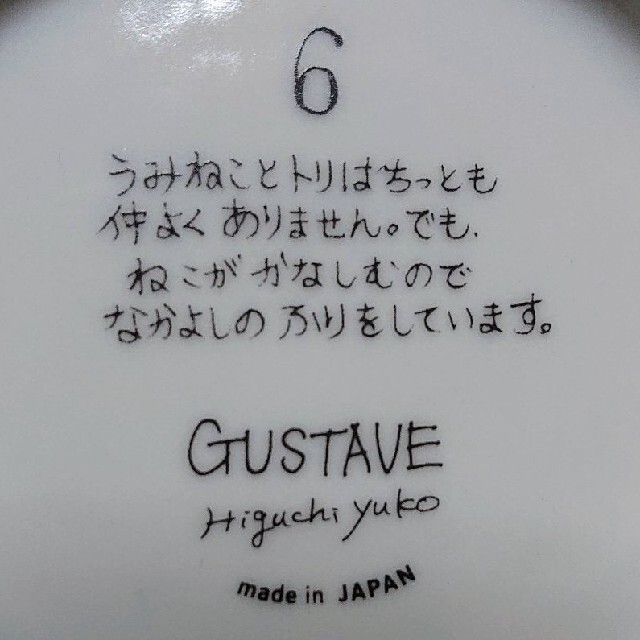 6
うみねことトリはちっとも
仲よく ありません。でも、
ねこが かなしむので
なかよしの ふりをしています。
GUSTAVE
Higuchi yuko
made in JAPAN